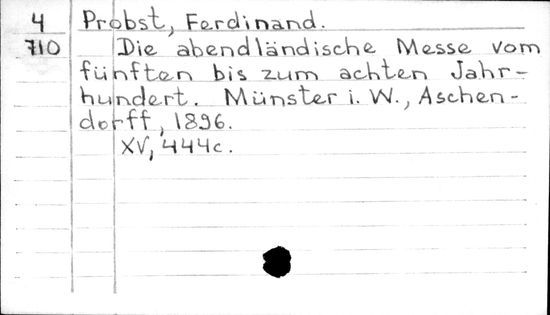 4 Probst, Ferdinand.
710 Die abendländische Messe vom
fünften bis zum achten Jahr-
hundert. Münster i. W., Aschen-
dorff, 1896.
XV, 444c.